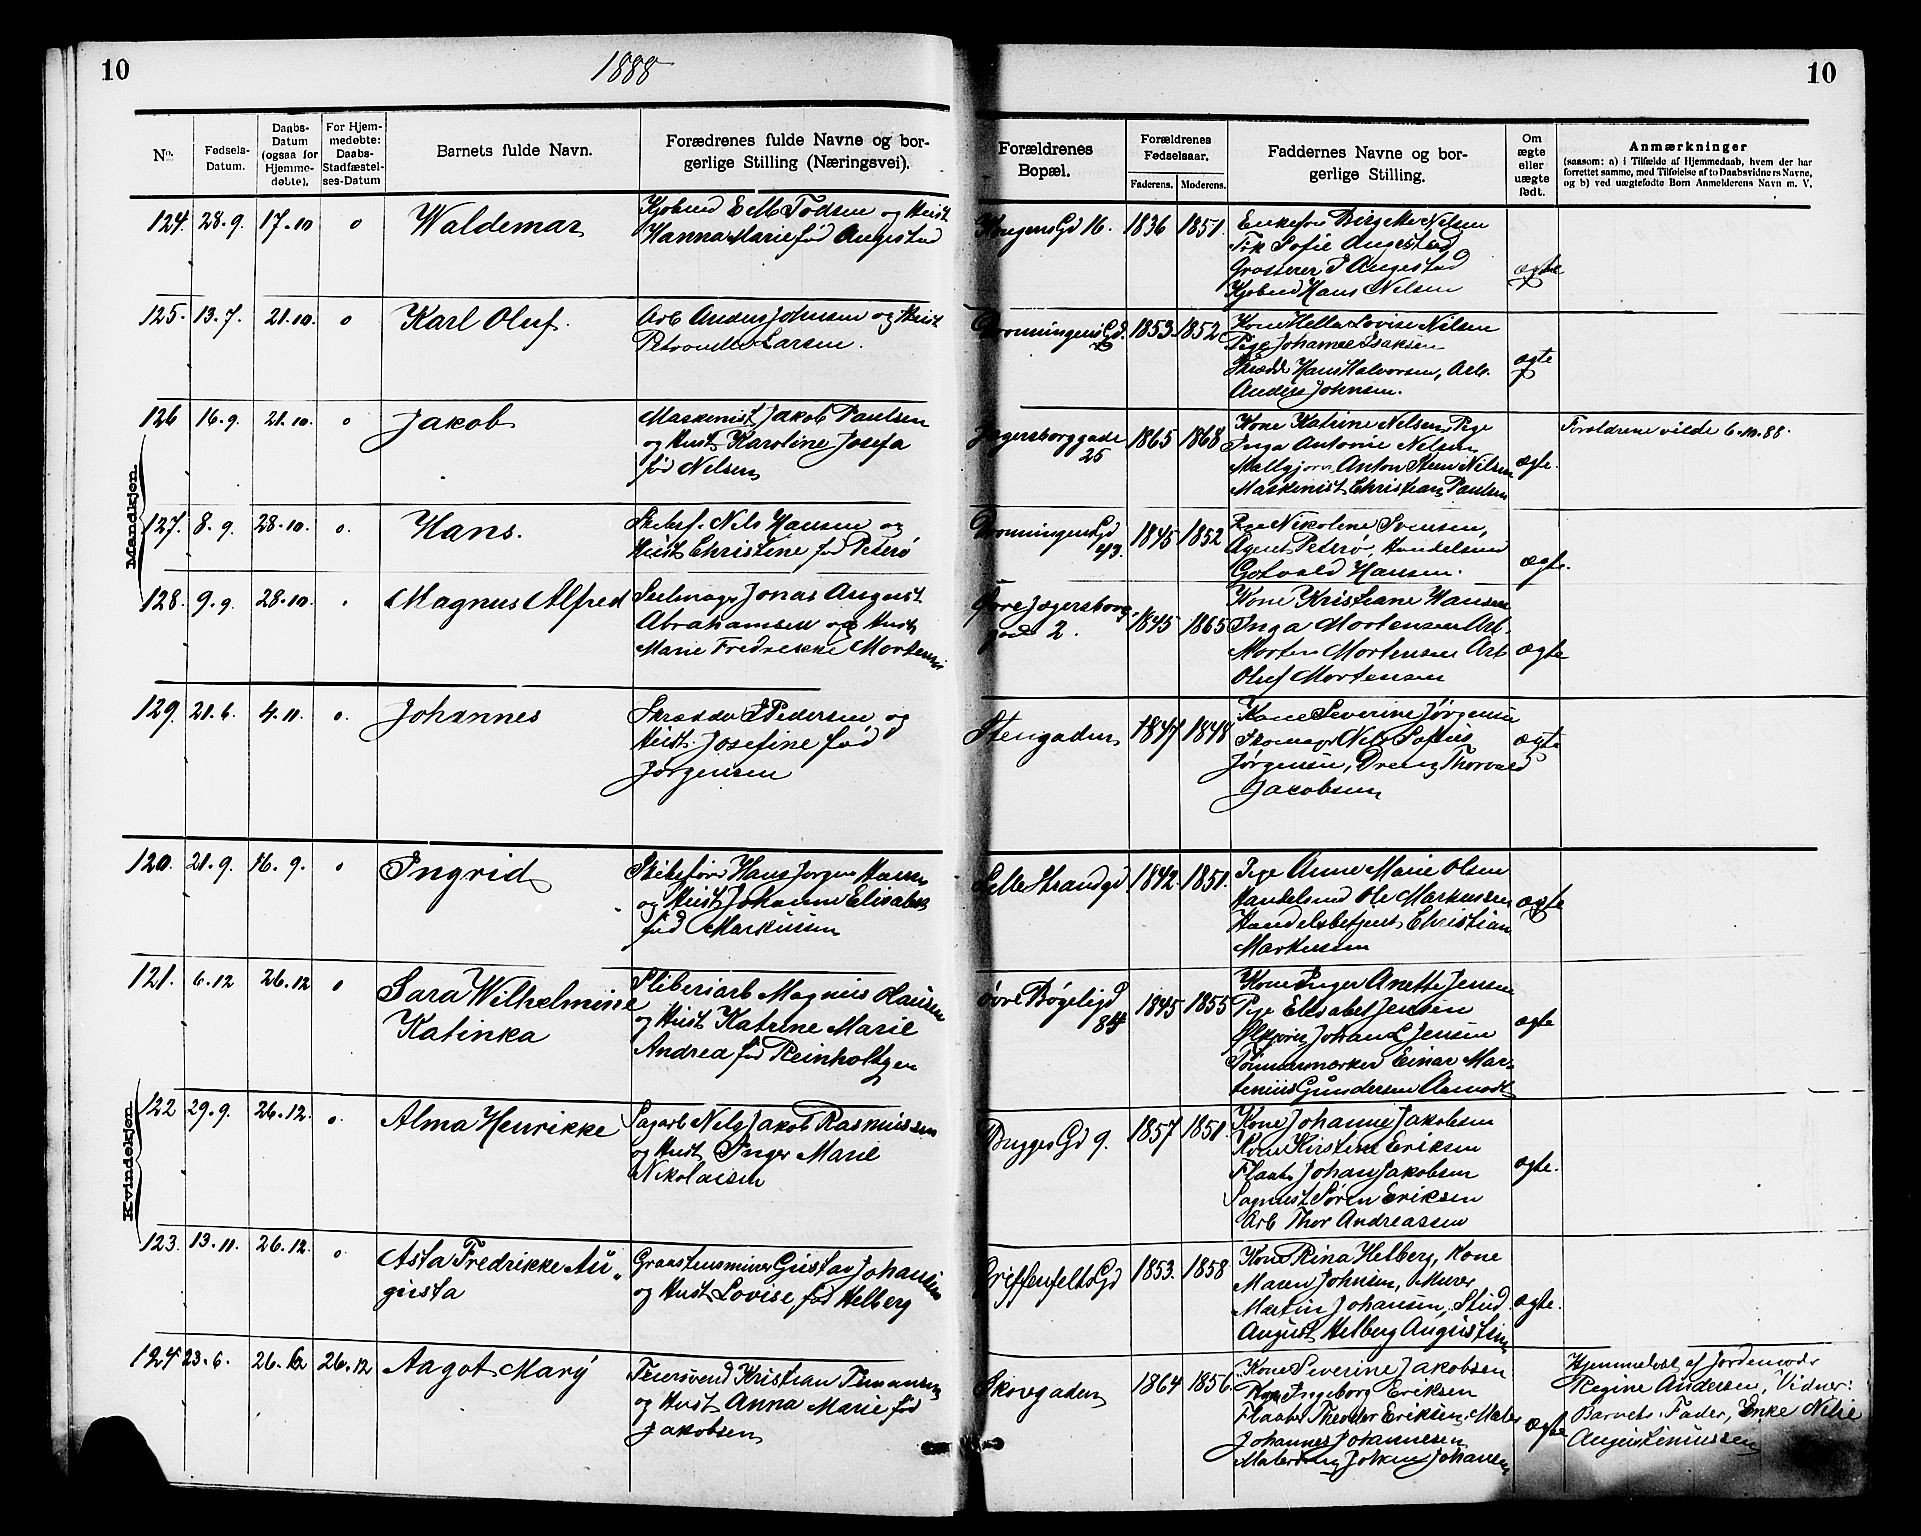 10
1888
10
No.
Fødsels-
Datum.
Daabs-
Datum
(ogsaa for
Hjemme-
døbte).
For Hjem-
medøbte:
Daabs-
Stadfæstel-
ses-Datum
Barnets fulde Navn.
Forældrenes fulde Navne og bor-
gerlige Stilling (Næringsvei).
Forældrenes
Bopæl.
Forældrenes
Fødselsaar.
Faderens.
Moderens.
Faddernes Navne og bor-
gerlige Stilling.
Om
ægte
eller
uægte
født.
Anmærkninger
(saasom: a) i Tilfælde af Hjemmedaab, hvem der har
forrettet samme, med Tilføielse af to Daabsvidners Navne,
og b) ved uægtefødte Børn Anmelderens Navn m. V.
Mandkjøn
124. 28.9. 17.10 0 Waldemar
Kjøbmd E M Todsen og Hust
Hanna Marie fød Angestad
Kongens Gd 16. 1836 1851.
Enkefru Birgitte Nilsen
Frk Sofie Angestad
Grosserer J Angestad
Kjøbmd Hans Nilsen
ægte
125. 13.7. 21.10. 0 Karl Oluf.
Arb Anders Johnsen og Hust
Petronelle Larsen.
Dronningens Gd. 1853. 1852
Kone Helle Lovise Nilsen
Pige Johanne Isaksen
Skrædd Hans Halvorsen, Arb.
Anders Johnsen.
ægte
126 16.9. 21.10. 0 Jakob
Maskinist Jakob Paulsen
og Hust Karoline Josefa
fød Nelsen
Jegersborggade
25
1865 1868
Kone Katrine Nelsen, Pige
Inga Antonie Nelsen
Anton Nilsen
Maskinist Christian Paulsen
ægte.
Foreldrene vilde 6.10.88.
127. 8.9. 28.10. 0. Hans.
Skibsf. Nils Hansen og
Hust Christine fød Peterø
Dronningens Gd
43.
1845 1852
Pige Nikoline Svensen,
Agnes Peterø, Handelsmd
Gotvald Hansen.
ægte.
128. 9.9. 28.10. Magnus Alfred
Seilmager Jonas August
Abrahamsen og Hust
Marie Fredrikke Mortensen
Øvre Jegersborg
gade 2.
1845 1865
Kone Kristiane Hansen
Inga Mortensen Arb.
Morten Mortensen Arb
Oluf Mortensen
ægte
129. 21.6. 4.11. 0. Johannes
Skrædder J Pedersen og
Hust. Josefine fød
Jørgensen
Stengaden 1847 1848
Kone Severine Jørgensen
Skomager Nils Sofius
Jørgensen, Dreng Thorvald
Jacobsen
ægte
Kvindekjøn
120. 21.9. 16.9. 0 Ingrid
Skibsfører Hans Jørgen Hansen
og Hust Johanne Elisabet
fød Markussen
Lille Strandgd 1842. 1851.
Pige Anne Marie Olsen
Handelsmd Ole Markussen
Handelsbetjent Christian
Markussen
ægte
121. 6.12 26.12 0 Sara Wilhelmine
Katinka
Sliberiarb Magnus Hansen
og Hust Katrine Marie
Andrea fød Reinholtzen
Øvre Bøgeligd
84
1845 1855
Kone Inger Anette Jensen
Pige Elisabet Jensen
Johan L Jensen
Tømmermærker Einar Mar-
tenius Gundersen Aamodt
ægte
122 29.9. 26.12. 0. Alma Henrikke
Sagarb Nils Jakob Rasmussen
og Hust Inger Marie
Nikolaisen
Brygges Gd 9. 1857 1851.
Kone Johanne Jakobsen
Kone Kirstine Eriksen
Flaab Johan Jakobsen
Sagmest Søren Eriksen
Arb Thor Andreassen
ægte.
123. 13.11. 26.12. 0 Asta Fredrikke Au-
gusta
Graastensminer Gustav Johansen
og Hust Lovise, fød Helberg
Griffenfelts Gd 1853. 1858
Kone Rina Helberg, Kone
Maren Johnsen, Murer
Martin Johansen, Stud
August Helberg Augustsen
ægte.
124 23.6. 26.12 26.12 Aagot Mary
Feiersvend Kristian Simonsen
og Hust Anna Marie fød
Jakobsen
Skovgaden 1864 1856.
Kone Severine Jakobsen
Pige Ingeborg Eriksen
Flaaber Theodor Eriksen, Maler
Johannes Johannesen
Malerdreng Johan Johansen
ægte
Hjemmedøbt af Jordemoder
Regine Andersen, Vidner:
Barnets Fader, Enke Nilie
Augustinussen